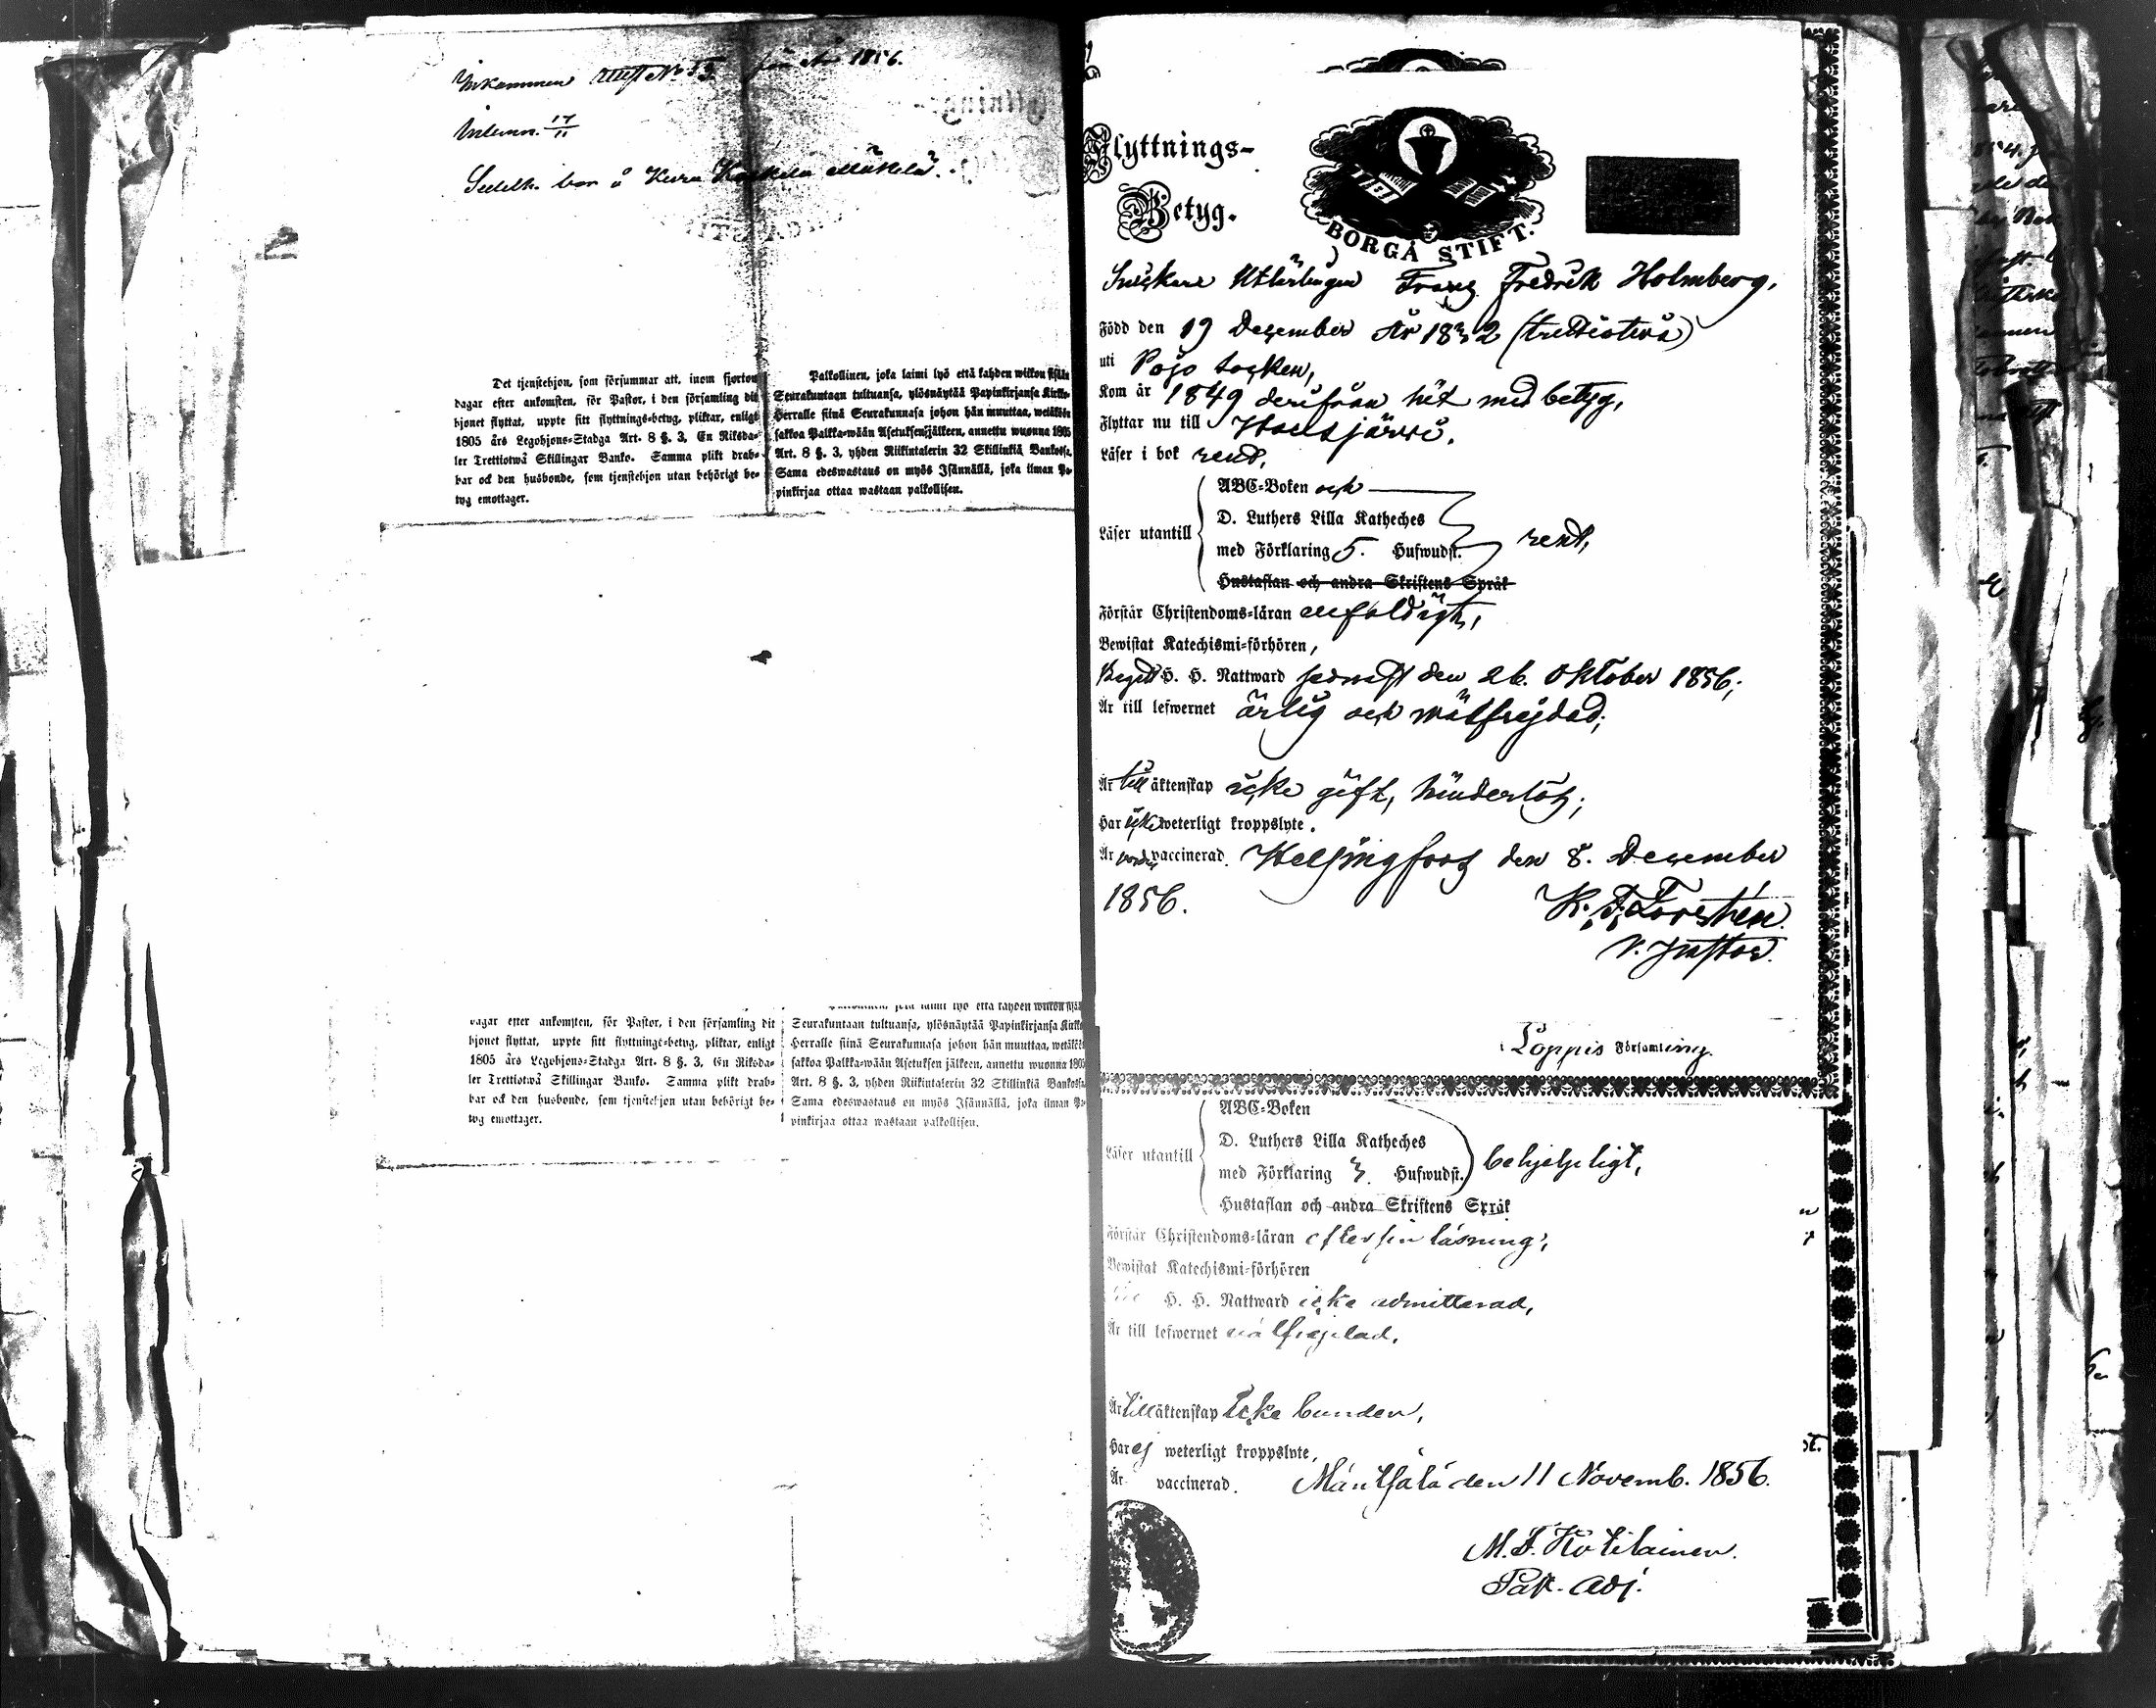 Inkommen Attest No 53 för år 1856.
Inlemn. 17/11
Sedelh. bor å Kera Mäkelä.
Det tjenstehjon, som försummar att, inom fjorton
dagar efter ankomsten, för Pastor, i den församling dit
hjonet flyttat, uppte sitt flyttnings-betyg, pliktar, enligt
1805 års Legohjons-Stadga Art. 8 §. 3, En Riksda-
ler Trettiotwå Skillingar Banko. Samma plikt drab-
bar ock den husbonde, som tjenstehjon utan behörigt be-
tyg emottager.
Palkollinen, joka laimi lyö että kahden wiikon sisään
Seurakuntaan tultuansa, ylösnäytää Papinkirjansa Kirkko-
Herralle siinä Seurakunnasa johon hän muuttaa, wetäköön
sakkoa Palkka-wään Asetuksen jälkeen, annettu wuonna 1805
Art. 8 §. 3, yhden Riikintalerin 32 Skillinkiä Bankossa.
Sama edeswastaus on myös Isännällä, joka ilman Pa-
pinkirjaa ottaa wastaan palkollisen.
dagar efter ankomsten, för Pastor, i den församling dit
hjonet flyttat, uppte sitt flyttnings-betyg, pliktar, enligt
1805 års Legohjons-Stadga Art. 8 §. 3, En Riksda-
ler Trettiotwå Skillingar Banko. Samma plikt drab-
bar ock den husbonde, som tjenstehjon utan behörigt be-
tyg emottager.
Palkollinen, joka laimi lyö että kahden wiikon sisään
Seurakuntaan tultuansa, ylösnäytää Papinkirjansa Kirkko-
Herralle siinä Seurakunnasa johon hän muuttaa, wetäköön
sakkoa Palkka-wään Asetuksen jälkeen, annettu wuonna 1805
Art. 8 §. 3, yhden Riikintalerin 32 Skillinkiä Bankossa.
Sama edeswastaus on myös Isännällä, joka ilman Pa-
pinkirjaa ottaa wastaan palkollisen.
Flyttnings-
Betyg.
BORGÅ STIFT.
Snickare Utlärlingen Franz Fredrik Holmberg,
Född den 19 December År 1832 (trettiotvå)
uti Pojo socken,
Kom år 1849 derifrån hit med betyg,
Flyttar nu till Hausjärvi.
Läser i bok rent,
ABC-Boken och
D. Luthers Lilla Katheches
Läser utantill
med Förklaring 5. Hufwudst. rent,
Hustaflan och andra Skriftens Språk
Förstår Christendoms-läran enfaldigt,
Bewistat Katechismi-förhören,
Begått H. H. Nattward sednast den 26. Oktober 1856;
Är till lefwernet ärlig och wälfrejdad;
Är till äktenskap icke gift, hinderlös;
Har icke weterligt kroppslyte.
Är vaccinerad. Helsingfors den 8. December
1856.
K. F. Forsthén.
V. Pastor.
Loppis Församling.
ABC-Boken
D. Luthers Lilla Katheches
Läser utantill
med Förklaring 3. Hufwudst. behjelpligt,
Hustaflan och andra Skriftens Språk
Förstår Christendoms-läran efter sin läsning,
Bewistat Katechismi-förhören
H. H. Nattward icke admitterad,
Är till lefwernet wälfrejdad,
Är till äktenskap icke bunden,
Har ej weterligt kroppslyte,
Är vaccinerad. Mäntsälä den 11 Novemb. 1856.
M. F. Kotilainen.
Past. Adj.